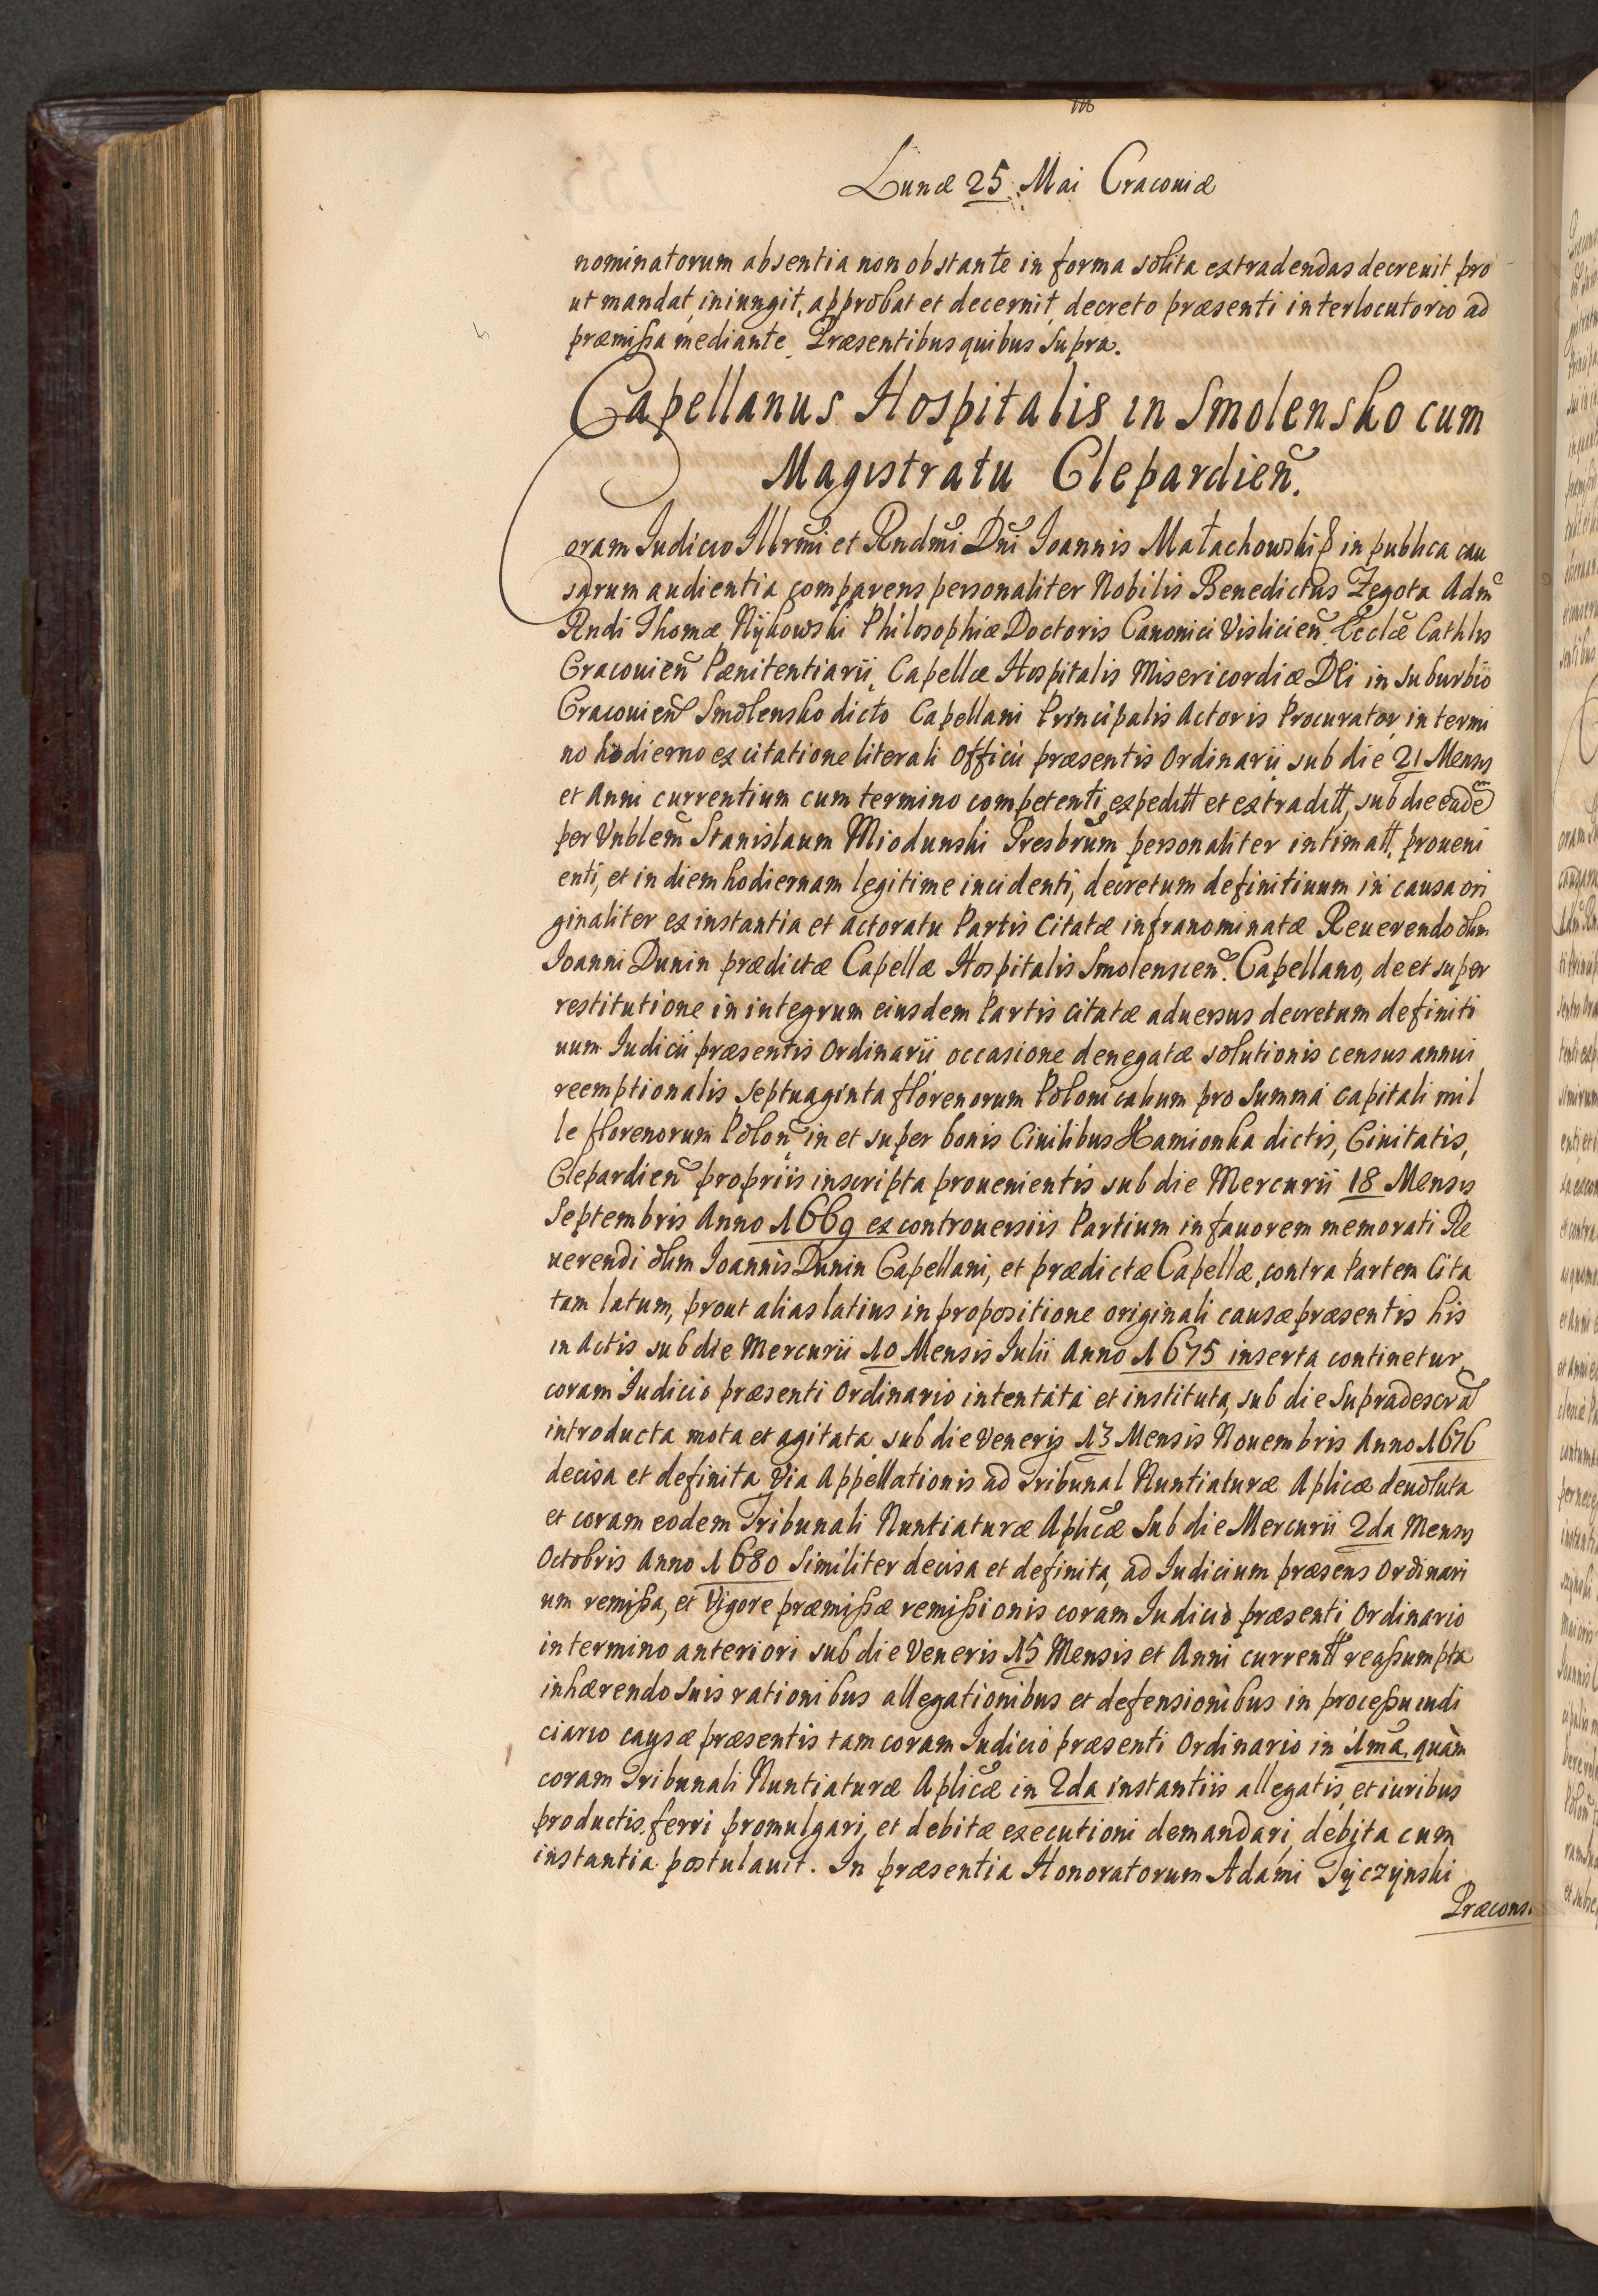 Lunæ 25. Mai Cracouiæ
nominatorum absentia non obstante in forma solita extradendas decreuit, pro
ut mandat, iniungit, approbat et decernit, decreto præsenti interlocutorio ad
præmissa mediante. Præsentibus quibus supra.
Capellanus Hospitalis in Smolensko cum
Magistratu Clepardien̄.
Coram Iudicio Illrmi et Rndmi Dni Ioannis Małachowski in publica cau
sarum audientia comparens personaliter Nobilis Benedictus Zegota Adm
Rndi Thomæ Nijkowski Philosophiæ Doctoris Canonici Vislicien̄ Eccłæ Cathlis
Cracouien̄ Pænitentiarii, Capellæ Hospitalis Misericordiæ DEi in suburbio
Cracouien̄ Smolensko dicto Capellani Principalis Actoris Procurator, in termi
no hodierno ex citatione literali Officii præsentis Ordinarii sub die 21 Mensis
et Anni currentium cum termino competenti expeditt et extraditt, sub die eadē
per Vnblem Stanislaum Miodunski Presbrum personaliter intimatt, proueni
enti, et in diem hodiernam legitime incidenti, decretum definitiuum in causa ori
ginaliter ex instantia et actoratu Partis Citatæ infranominatæ Reuerendo olim
Ioanni Dunin prædictæ Capellæ Hospitalis Smolenscen̄. Capellano, de et super
restitutione in integrum eiusdem Partis citatæ aduersus decretum definiti
uum Iudicii præsentis Ordinarii occasione denegatæ solutionis census annui
reemptionalis septuaginta florenorum Polonicalium pro summa capitali mil
le florenorum Polon̄ in et super bonis Ciuilibus Kamionka dictis, Ciuitatis,
Clepardien̄ propriis inscripta prouenientis sub die Mercurii 18 Mensis
Septembris Anno 1669 ex controuersiis Partium in fauorem memorati Re
uerendi olim Ioannis Dunin Capellani, et prædictæ Capellæ, contra Partem Cita
tam latum, prout alias latius in propositione originali causæ præsentis his
in Actis sub die Mercurii 10 Mensis Iulii Anno 1675 inserta continetur,
coram Iudicio præsenti Ordinario intentata et instituta, sub die supradescrā
introducta mota et agitata sub die Veneris 13 Mensis Nouembris Anno 1676
decisa et definita Via Appellationis ad Tribunal Nuntiaturæ Aplicæ deuoluta
et coram eodem Tribunali Nuntiaturæ Aplicæ Sub die Mercurii 2da Mensis
Octobris Anno 1680 Similiter decisa et definita, ad Iudicium præsens Ordinari
um remissa, et Vigore præmissæ remissionis coram Iudicio præsenti Ordinario
in termino anteriori sub die Veneris 15 Mensis et Anni currentt reassumpta
inhærendo suis rationibus allegationibus et defensionibus in processu iudi
ciario causæ præsentis tam coram Iudicio præsenti Ordinario in 1ma, quàm
coram Tribunali Nuntiaturæ Aplicæ in 2da instantiis allegatis, et iuribus
productis, ferri promulgari, et debitæ executioni demandari, debita cum
instantia postulauit. In præsentia Honoratorum Adami Tyczynski
Præcons